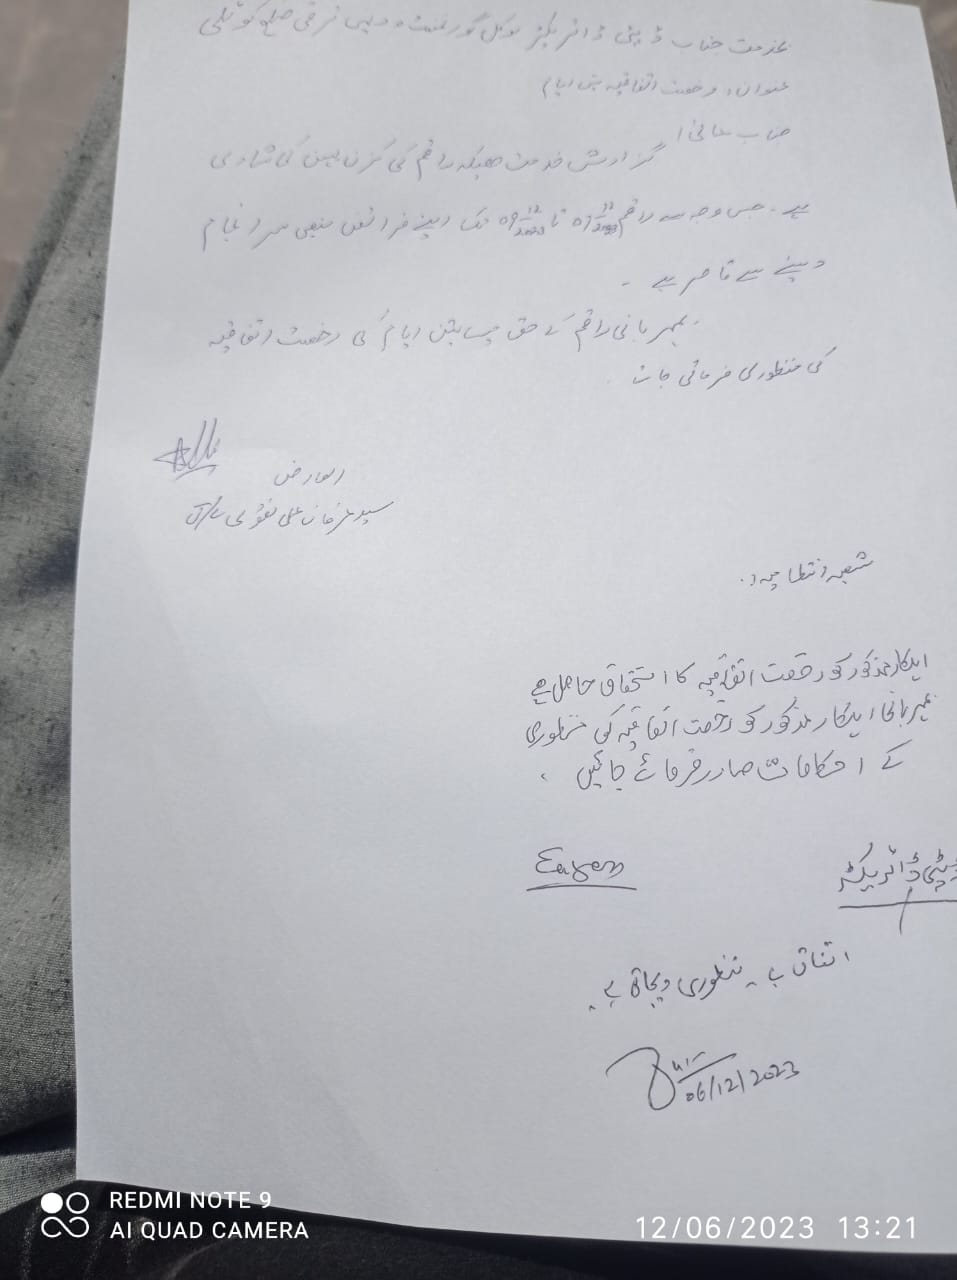 بخدمت جناب ڈپٹی ڈائریکٹر لوکل گورنمنٹ و دیہی ترقی ضلع کوٹلی
عنوان: رخصت اتفاقیہ تین ایام
جناب عالی!
گزارش خدمت ھیکہ راقم کی کزن بہن کی شادی
ہے۔ جس وجہ سے راقم 07/12/2023 تا 09/12/2023 تک اپنے فرائض منصبی سر انجام
دینے سے قاصر ہے ۔
بمہربانی راقم کے حق میں تین ایام کی رخصت اتفاقیہ
کی منظوری فرمائی جائے
العارض
سید عرفان علی نقوی
شعبہ انتظامیہ:
اہلکار مذکور کو رخصت اتفاقیہ کا استحقاق حاصل ہے
بمہربانی اہلکار مذکور کو رخصت اتفاقیہ کی منظوری
کے احکامات صادر فرمائے جائیں ۔
ڈپٹی ڈائریکٹر
اتفاق ہے منظوری دیجاتی ہے۔
06/12/2023
REDMI NOTE 9
AI QUAD CAMERA
12/06/2023 13:21